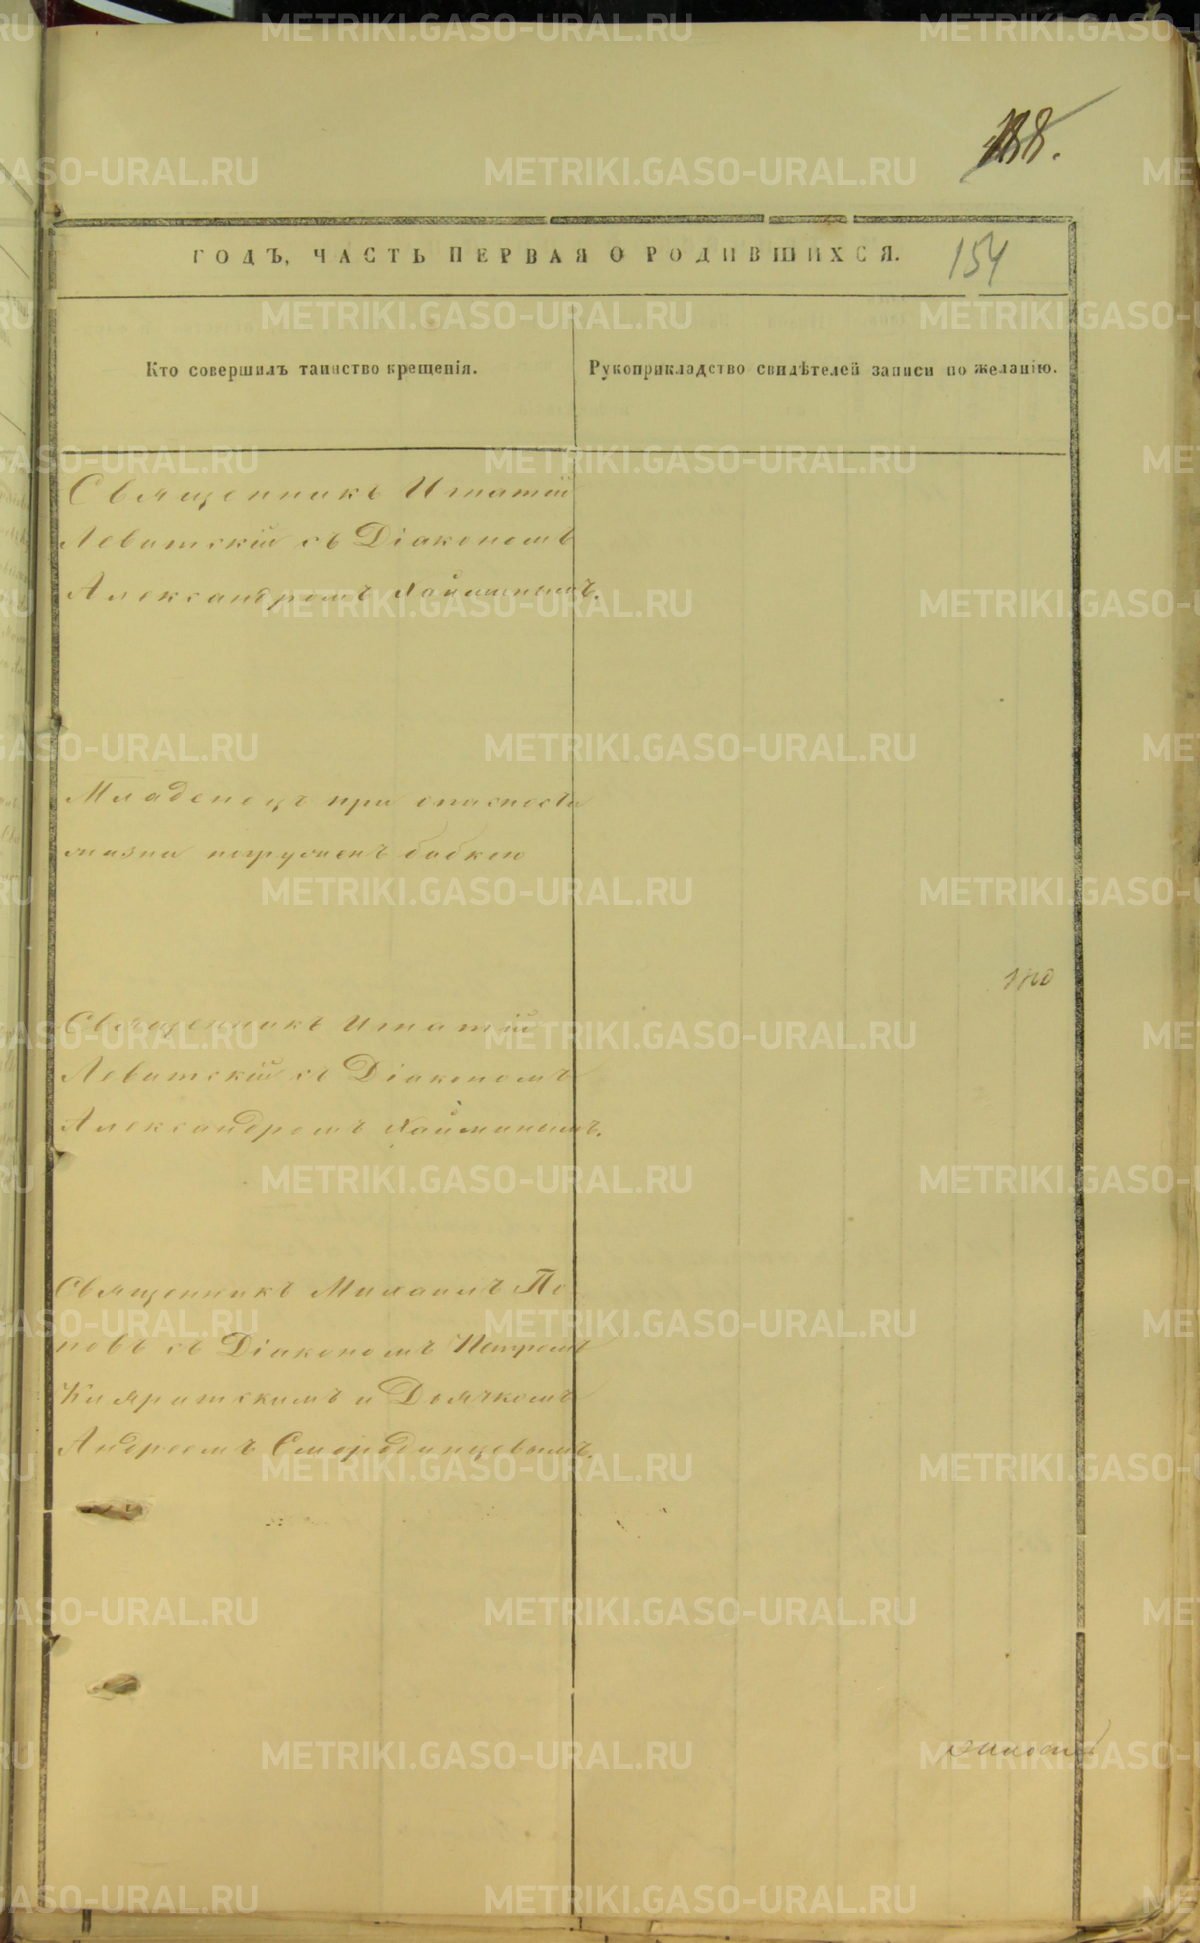 188.
ГОДЪ, ЧАСТЬ ПЕРВАЯ О РОДИВШИХСЯ.
154
Кто совершилъ таинство крещенія.
Рукоприкладство свидѣтелей записи по желанію.
Священникъ Игнатій
Левитскій съ Діакономъ
Александромъ
Младенецъ при опасности
жизни погруженъ бабкою
Священникъ Игнатій
Левитскій съ Діакономъ
Александромъ
Священникъ Михаилъ По
повъ съ Діакономъ Петромъ
и Дьячкомъ
Андреемъ Смородинцевымъ.
METRIKI.GASO-URAL.RU